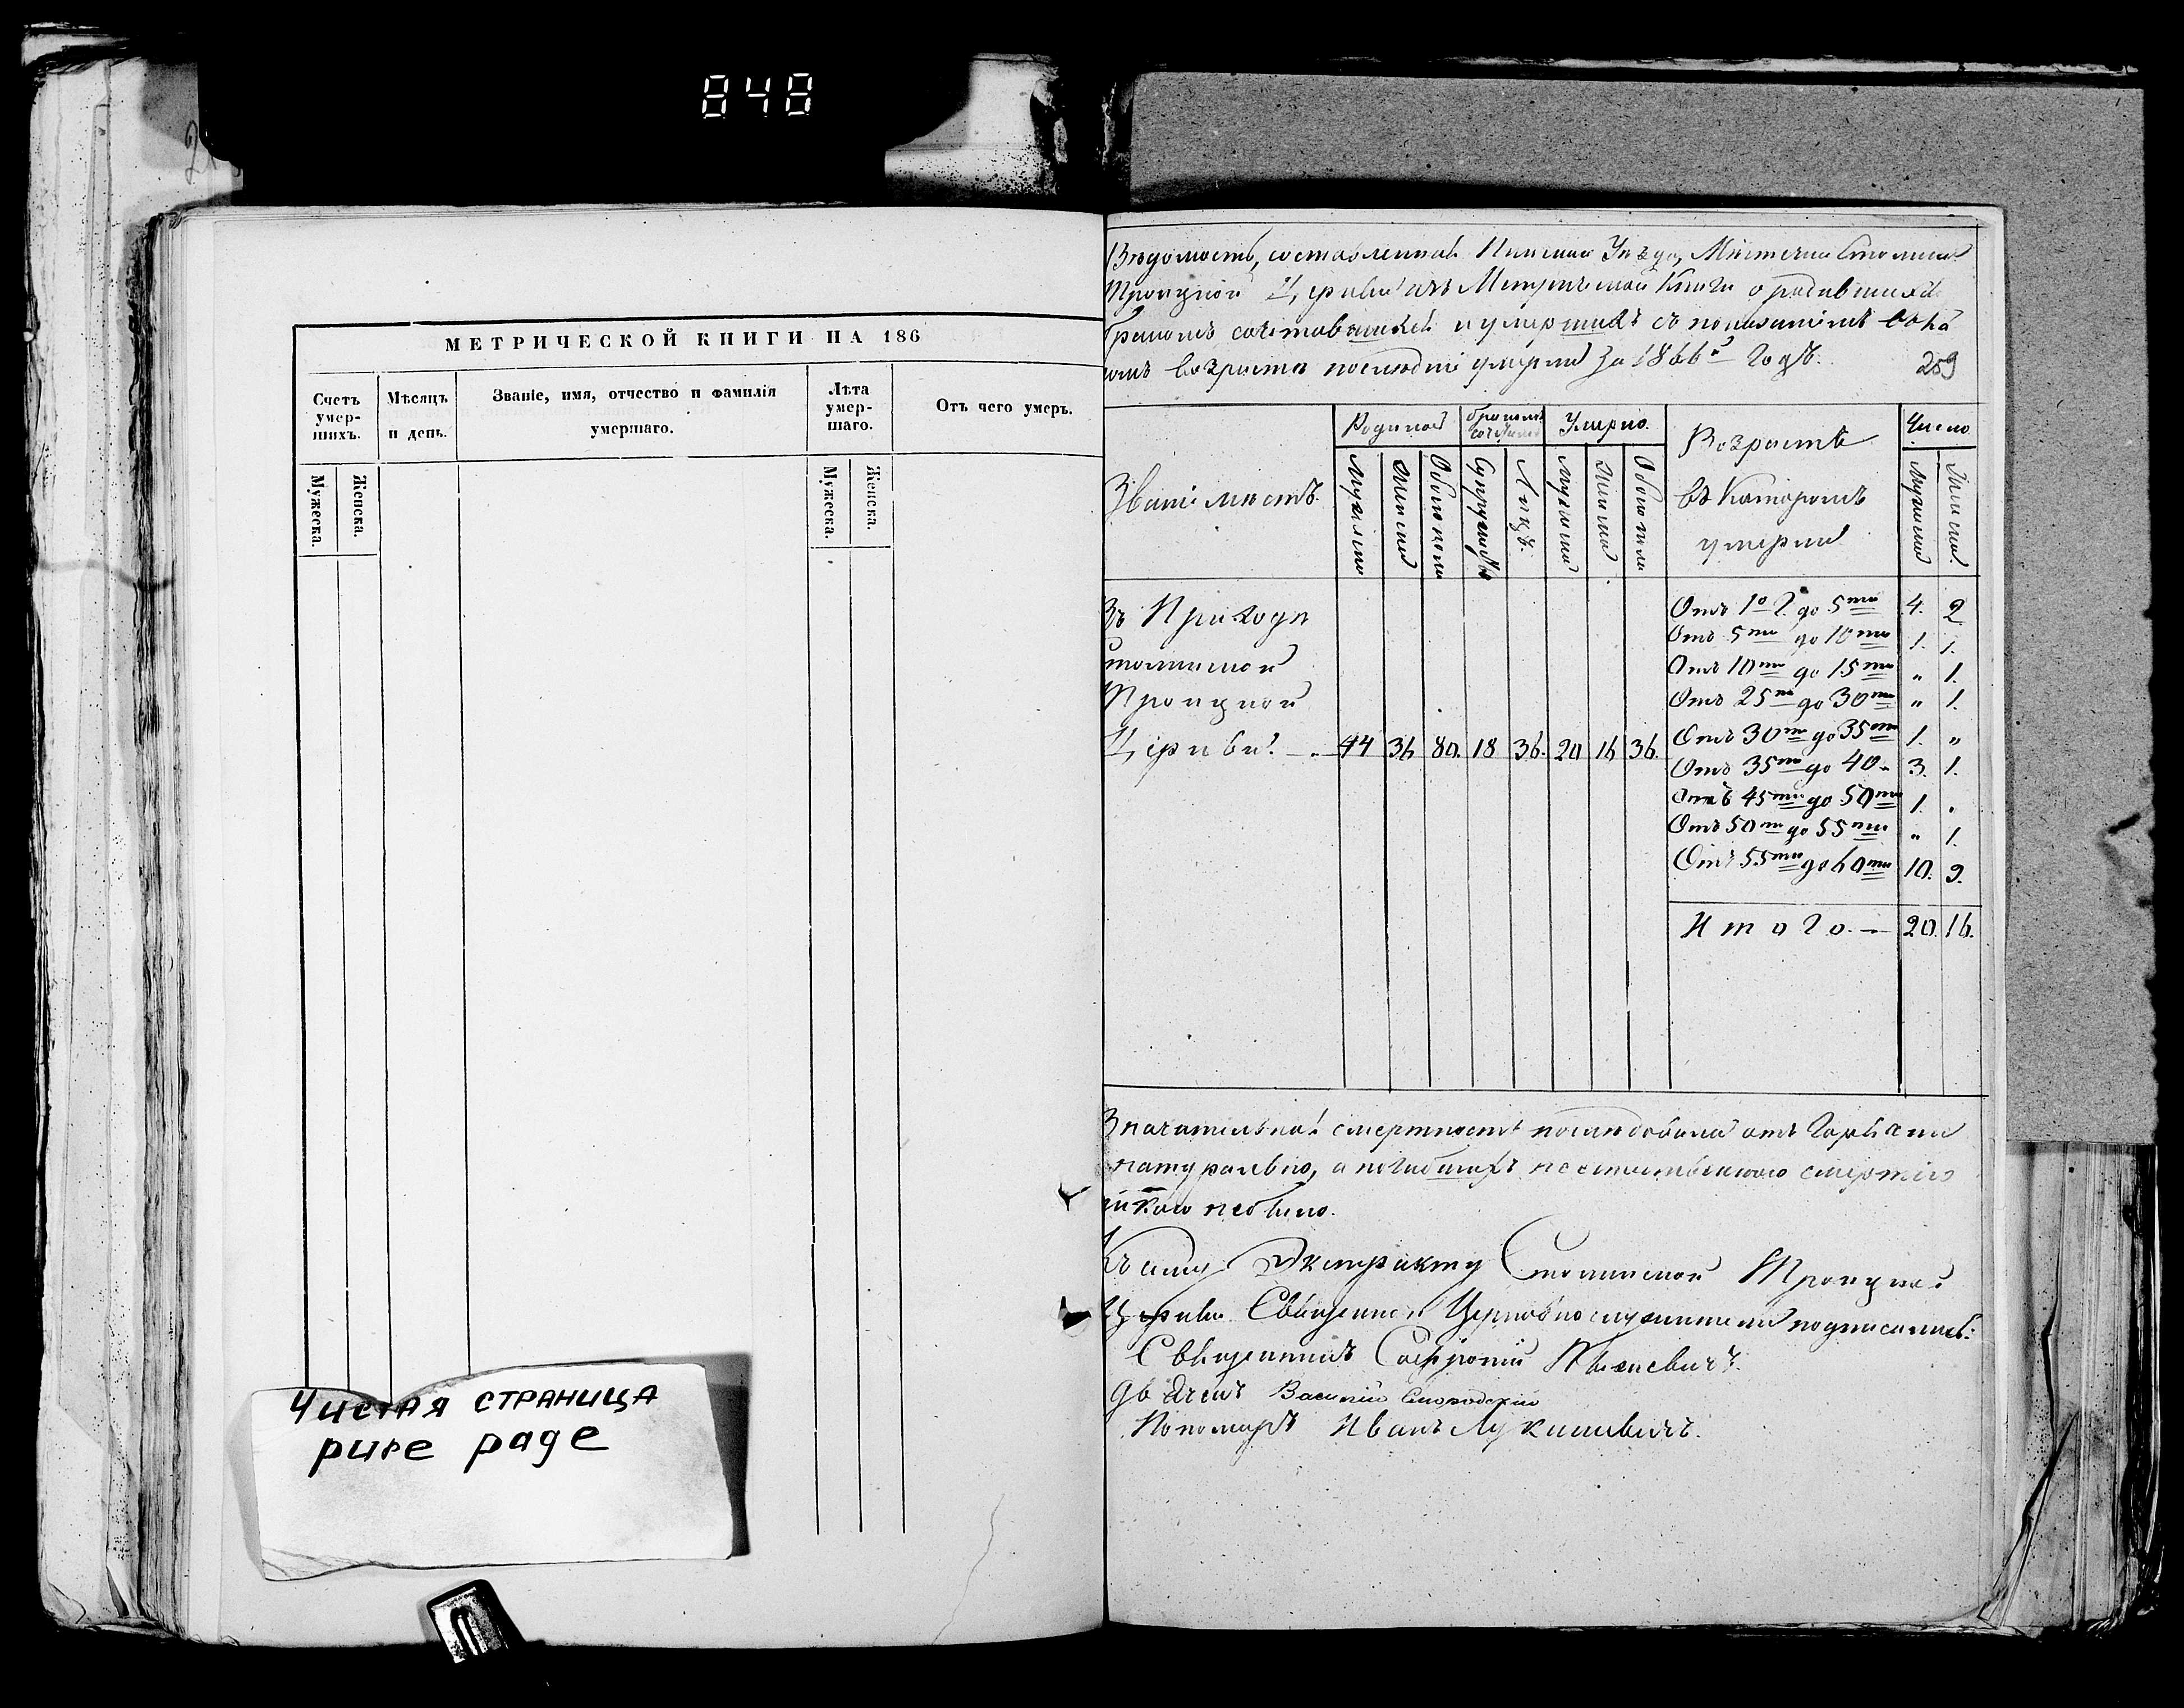 848
МЕТРИЧЕСКОЙ КНИГИ НА 186
Счетъ умер- шихъ.
Мѣсяцъ и день.
Званіе, имя, отчество и фамилія умершаго.
Лѣта умер- шаго.
Отъ чего умеръ.
Мужеска. Женска.
Мужеска. Женска.
Чистая страница
pure page
Вѣдомость, составленная Пинскаго Уѣзда, Мѣстечка Столина
Троицкой Церкви изъ Метрической Книги о родившихся
бракомъ сочетавшихся и умершихъ съ показаніемъ
возраста последніе умерли за 1866й Годъ.
259
Званіе мѣстъ.
Родилось
Бракомъ сочетано
Умерло
Возрастъ
въ которомъ
умерли
Число
Мужеска Женска Обоего пола Супружествъ Лицъ. Мужеска Женска Обоего пола Мужеска Женска
Въ Приходѣ
Столинской
Троицкой
Церкви. — 44 36 80. 18 36. 20 16 36.
Отъ 1о г. до 5ти 4. 2
Отъ 5ти до 10ти 1. 1.
Отъ 10ти до 15ти „ 1.
Отъ 25ти до 30ти „ 1.
Отъ 30ти до 35ти 1. „
Отъ 35ти до 40 3. 1.
Отъ 45ти до 50ти 1. „
Отъ 50ти до 55ти „ 1.
Отъ 55ти до 60ти 10. 9.
Итого. — 20. 16.
Значительная смертность последовала отъ
натурально, а погибшихъ неестественною смертію
никого небыло.
Къ сему Экстракту Столинской Троицкой
Церкви Священно и Церковнослужители подписались:
Священникъ Софроній
Дьячекъ Василій
Пономарь Иванъ Лукашевичъ.